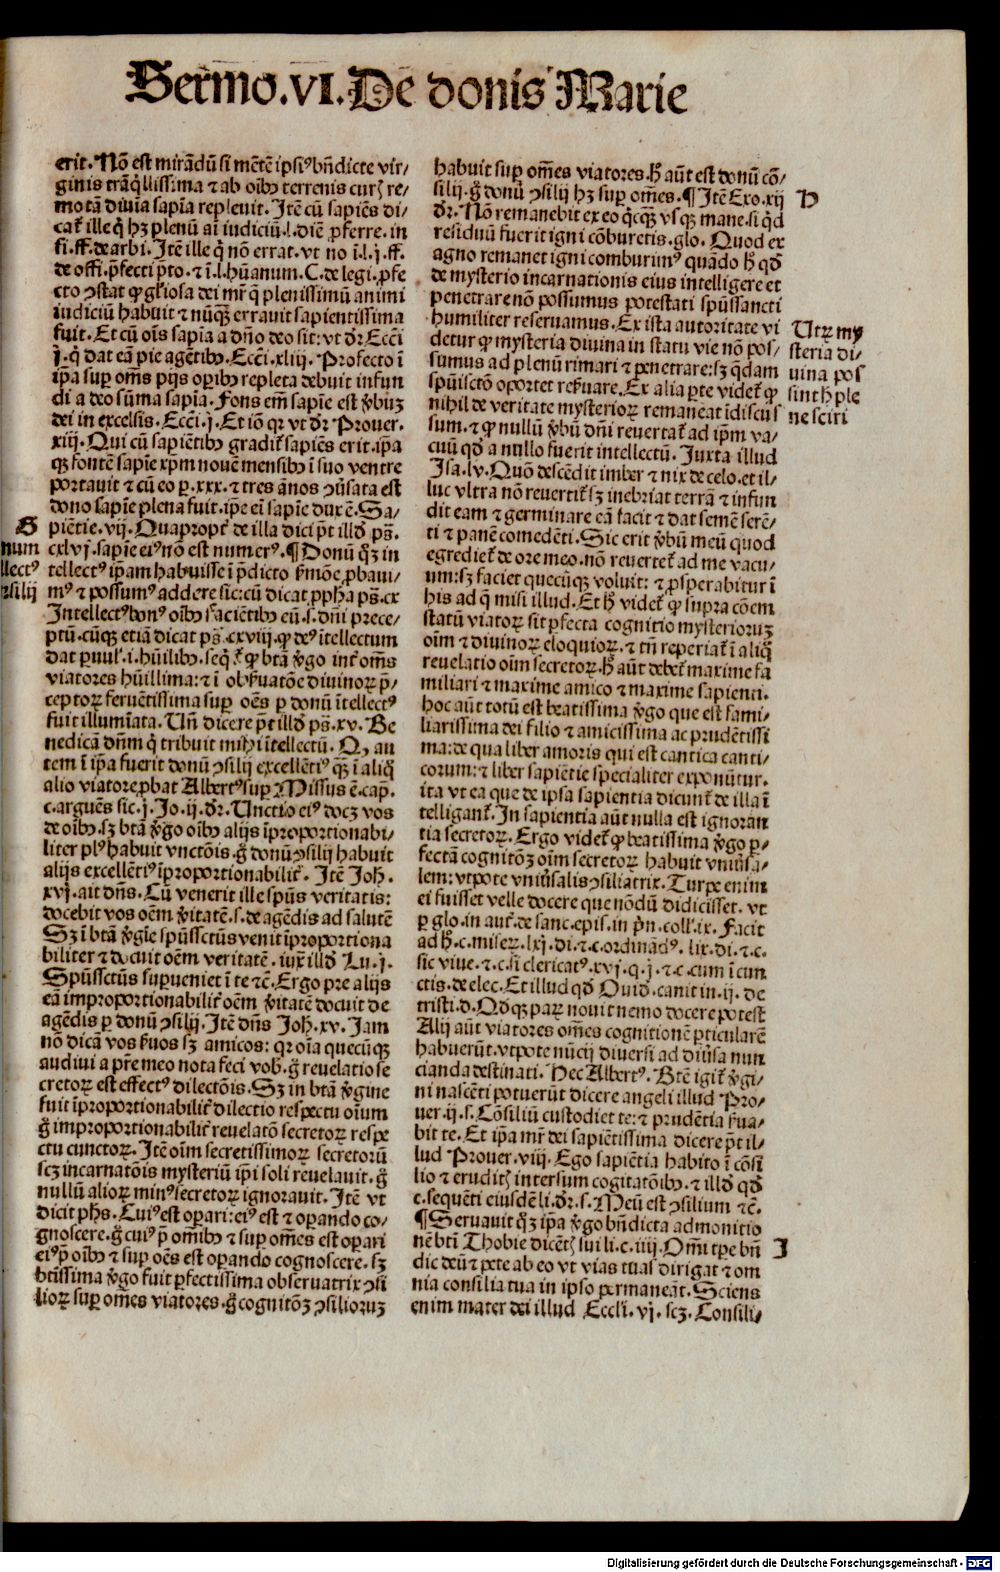 Sermo.VI.De donis Marie
erit. Nõ est mirãdũ si mẽtẽ ipsiꝰ bñdicte vir-
ginis trãq̃llissima ⁊ ab oĩbꝫ terrenis curis re-
motã diuĩa sapĩa repleuit. Itẽ cũ sapiẽs di-
fuit. Et cũ oĩs sapĩa a dño deo sit: vt dr̃ Eccĩ
dei in excelsis. Eccĩ.j. Et iõ qꝛ vt dr̃ Prouer.
xiij. Qui cũ sapiẽtibꝫ gradit̃ sapiẽs erit. ip̃a
qꝫ fontẽ sapĩe xp̃m nouẽ mensibꝫ ĩ suo ventre
portauit ⁊ cũ eo ꝑ .xxx. ⁊ tres ãnos ꝯũsata est
dono sapĩe plena fuit. ip̃e ei sapĩe dux ẽ. Sa-
piẽtie. vij. Quapropt̃ de illa dici p̃t illd̃ ps̃.
cxlvj. sapĩe eiꝰ nõ est numerꝰ. ¶ Donũ q̃ꝫ in
tellectꝰ ip̃am habuisse ĩ p̃dicto ẜmõe ꝓbaui-
mꝰ ⁊ possumꝰ addere sic: cũ dicat ꝓpha ps̃.cx
Intellectꝰ bonꝰ oĩbꝫ faciẽtibꝫ eũ.s. dñi prece-
ptũ. cũqꝫ etiã dicat ps̃.cxviij. ꝙ deꝰ ĩtellectum
viatores hũillima: ⁊ ĩ obẜuatõe diuinoꝝ p̃-
ceptoꝝ feruẽtissima suꝑ oẽs ꝑ donũ ĩtellectꝰ
fuit illumĩata. Vñ dicere p̃t illd̃ ps̃.xv. Be
nedicã dñm q̃ tribuit mihi ĩtellectũ. Qꝫ au
tem ĩ ip̃a fuerit donũ ꝯsilij excellẽtiꝰ qꝫ̃ ĩ aliq̃
alio viatore ꝓbat Albertꝰ suꝑ Missus ẽ. cap̃.
c. arguẽs sic. j. Jo. ij. dr̃. Vnctio eiꝰ docꝫ vos
de oĩbꝫ. sꝫ btã ỹgo oĩbꝫ alijs ĩproportionabi-
liter plꝰ habuit vnctõis. g̃ donũ ꝯsilij habuit
alijs excellẽtiꝰ ĩproportionabilit̃. Itẽ Joh̃.
xvj. ait dñs. Cũ venerit ille spũs veritatis:
docebit vos oẽm ỹitatẽ.s. de agẽdis ad salutẽ
Sꝫ ĩ btã ỹgĩe spũssctũs venit ĩproportiona
biliter ⁊ docuit oẽm veritatẽ. iux̃ illd̃ Lu.j.
Spũssctũs suꝑueniet ĩ te ⁊c̃. Ergo pre alijs
eã improportionabilit̃ oẽm ỹitatẽ docuit de
agẽdis ꝑ donũ ꝯsilij. Itẽ dñs Joh̃. xv. Iam
nõ dicã vos ẜuos sꝫ amicos: qꝛ oĩa quecũqꝫ
audiui a pr̃e meo nota feci vob̃. g̃ reuelatio se
cretoꝝ est effectꝰ dilectõis. Sꝫ in btã ỹgine
fuit ĩproportionabilit̃ dilectio respectu oĩum
g̃ improportionabilit̃ reuelatõ secretoꝝ respe
ctu cunctoꝝ. Itẽ oĩm secretissimoꝝ secretorũ
scꝫ incarnatõis mysteriũ ip̃i soli reuelauit. g̃
nullũ alioꝝ minꝰ secretoꝝ ignorauit. Itẽ vt
dicit phs̃. Cuiꝰ est oꝑari: eiꝰ est ⁊ oꝑando co-
gnoscere. g̃ cuiꝰ p̃ omĩbꝫ ⁊ suꝑ omẽs est oꝑari
eiꝰ p̃ oĩbꝫ ⁊ suꝑ oẽs est oꝑando cognoscere. sꝫ
btissima ỹgo fuit ꝑfectissima obseruatrix ꝯsi
lioꝝ suꝑ omẽs viatores. g̃ cognitõꝫ ꝯsilioruꝫ
num
llectꝰ
ꝯsilij
habuit suꝑ omẽs viatores. h̃ aũt est donũ cõ-
silij. g̃ donũ ꝯsilij hꝫ suꝑ omẽs. ¶ Itẽ Exo.xij
dr̃. Nõ remanebit ex eo q̃cqꝫ̃ vsqꝫ mane. si q̃d
residuũ fuerit igni cõburetis. glo. Quod ex
agno remanet igni comburimꝰ quãdo h̃ qd̃
de mysterio incarnationis eius intelligere et
penetrare nõ possumus potestati spũssancti
humiliter reseruamus. Ex ista autoritate vi
detur ꝙ mysteria diuina in statu vie nõ pos-
sumus ad plenũ rimari ⁊ penetrare: sꝫ q̃dam
spũisctõ oportet reẜuare. Ex alia ꝑte videt̃ ꝙ
nihil de veritate mysterioꝝ remaneat ĩdiscus
sum. ⁊ ꝙ nullũ ỹbũ dñi reuertat̃ ad ip̃m va-
cuũ qd̃ a nullo fuerit intellectũ. Iuxta illud
Isa. lv. Quõ descẽdit imber ⁊ nix de celo. et il-
luc vltra nõ reuertit̃ sꝫ inebriat terrã ⁊ infun
dit eam ⁊ germinare eã facit ⁊ dat semẽ serẽ-
ti ⁊ panẽ comedẽti. Sic erit ỹbũ meũ quod
egrediet̃ de ore meo. nõ reuertet̃ ad me vacu-
um: sꝫ faciet quecũqꝫ volui: ⁊ ꝓsperabitur ĩ
his ad q̃ misi illud. Et h̃ videt̃ ꝙ supra cõem
statũ viatoꝝ sit ꝑfecta cognitio mysterioruꝫ
oĩm ⁊ diuinoꝝ eloquioꝝ. ⁊ tñ reperiat̃ ĩ aliq̃
reuelatio oĩm secretoꝝ. h̃ aũt debet̃ maxime fa
miliari ⁊ maxime amico ⁊ maxime sapienti.
hoc aũt totũ est beatissima ỹgo que est fami-
liarissima dei filio ⁊ amicissima ac prudẽtissi
ma: de qua liber amoris qui est cantica canti-
corum: ⁊ liber sapiẽtie specialiter exponũtur.
ita vt ea que de ipsa sapientia dicunt̃ de illa ĩ
telligant̃. In sapientia aũt nulla est ignoran
tia secretoꝝ. Ergo videt̃ ꝙ beatissima ỹgo ꝑ-
fectã cognitõꝫ oĩm secretoꝝ habuit vniũsa-
lem: vtpote vniũsalis ꝯsiliatrix. Turpe enim
ei fuisset velle docere que nõdũ didicisset. vt
ꝑ glo. in aut̃. de sanc. epis. in p̃n. coll̃. ix. Facit
ad h̃.c. miseꝝ. lxj. di. ⁊.c. ordinãdꝰ. lix. di. ⁊.c.
sic viue. ⁊.c. si clericatꝰ. xvj. q. j. ⁊.c. cum ĩ cun
ctis. de elec. Et illud qd̃ Ouid̃. canit in. ij. de
tristi. d. Qd̃qꝫ paꝝ nouit nemo docere potest
Alij aũt viatores omẽs cognitionẽ ꝑticularẽ
habuerũt. vtpote nũcij diuersi ad diũsa nun
cianda destinati. Hec Albertꝰ. Btẽ igit̃ ỹgi-
ni nascẽti potuerũt dicere angeli illud Pro-
uer. ij. s. Cõsiliũ custodiet te: ⁊ prudẽtia ẜua-
bit te. Et ip̃a mr̃ dei sapiẽtissima dicere p̃t il-
lud Prouer. viij. Ego sapiẽtia habito ĩ cõsi
lio ⁊ eruditis intersum cogitatõibꝫ. ⁊ illd̃ qd̃
c. sequẽti eiusdẽ li. dr̃. s. Meũ est ꝯsilium ⁊c̃.
¶ Seruauit q̃ꝫ ip̃a ỹgo bñdicta admonitio
nẽ bti Thobie dicẽtis sui li. c. iiij. Omĩ tꝑe bñ
dic deũ ⁊ pete ab eo vt vias tuas dirigat ⁊ om
nia consilia tua in ipso permaneãt. Sciens
enim mater dei illud Eccli. vj. scꝫ. Consili-
H
Utꝝ my
steria di-
uina pos
sint h̃ ple
ne sciri
I
Digitalisierung gefördert durch die Deutsche Forschungsgemeinschaft - DFG